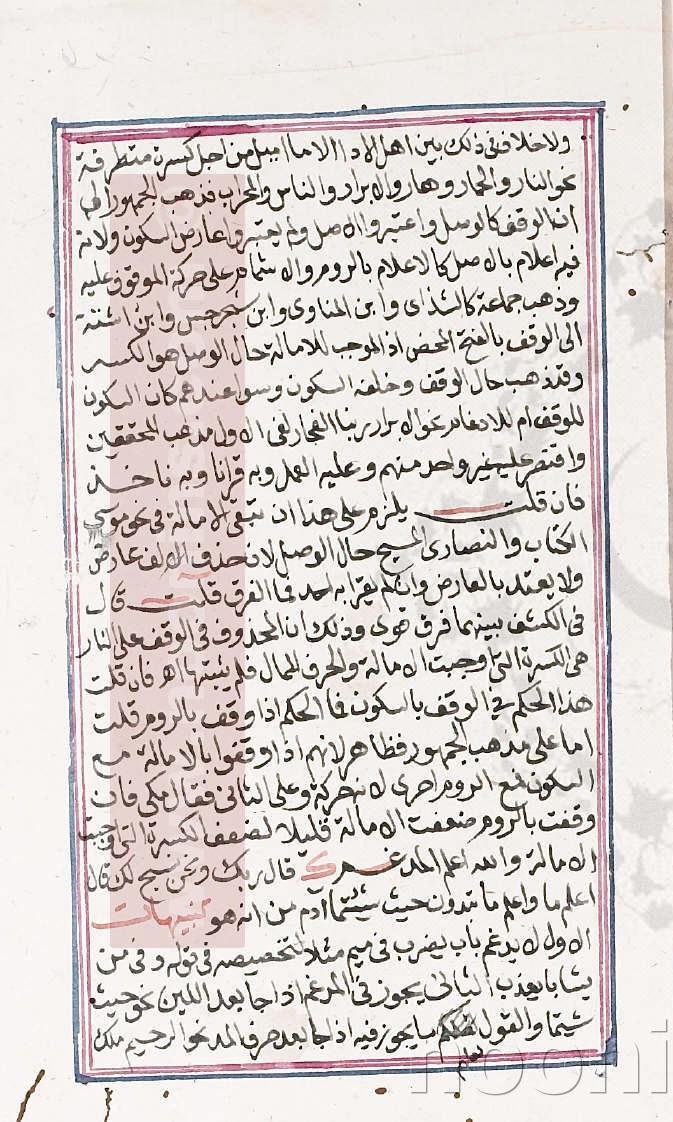 ولا خلاف في ذلك بين اهل الادا الا ما اميل من اجل كسرة متطرفة
نحو النار والحمار وهار والابرار والناس والمحراب فذهب الجمهور الى
ان الوقف كالوصل واعتبروا الاصل ولم يعتبروا عارض السكون ولانه
فيه اعلام بالاصل كالاعلام بالروم والاشمام على حركة الموقوف عليه
وذهب جماعة كالشذاى وابن المناوى وابن حبش وابن اشتة
الى الوقف بالفتح المحض اذ الموجب للامالة حال الوصل هو الكسر
وقد ذهب حال الوقف وخلفه السكون وسوا عندهم كان السكون
للوقف ام للادغام نحو الابرار ربنا الفجار لفى الاول مذهب المحققين
واقتصر عليه غير واحد منهم وعليه العمل وبه قرانا وبه ناخذ
فان قلت يلزم على هذا ان تبقى الامالة في نحو موسى
الكتاب والنصارى المسيح حال الوصل لان حذف الالف عارض
ولا يعتد بالعارض وان لم يقرا به احد فما الفرق قلت قال
في الكشف بينهما فرق قوى وذلك ان المحذوف في الوقف على النار
هى الكسرة التى اوجبت الامالة والحرف الممال فلم يثبتها اه فان قلت
هذا الحكم في الوقف بالسكون فما الحكم اذا وقف بالروم قلت
اما على مذهب الجمهور فظاهر لانهم اذا وقفوا بالامالة مع
السكون فمع الروم احرى لانه حركة وعلى الثانى فقال مكى فان
وقفت بالروم ضعفت الامالة قليلا لضعف الكسرة التى اوجبت
الامالة والله اعلم المدغم ك قال ربك ونحن نسبح لك قال
اعلم ما واعلم ما تبدون حيث شيتما آدم من انه هو تنبيهات
الاول لا يدغم باب يضرب في ميم مثلا لتخصيصه في قوله وفي من
يشا با يعذب الثانى يجوز في المدغم اذا جا بعد اللين نحو حيث
شيتما والقول لعلكم ما يجوز فيه اذا جا بعد حرف المد نحو الرحيم ملك
nooni